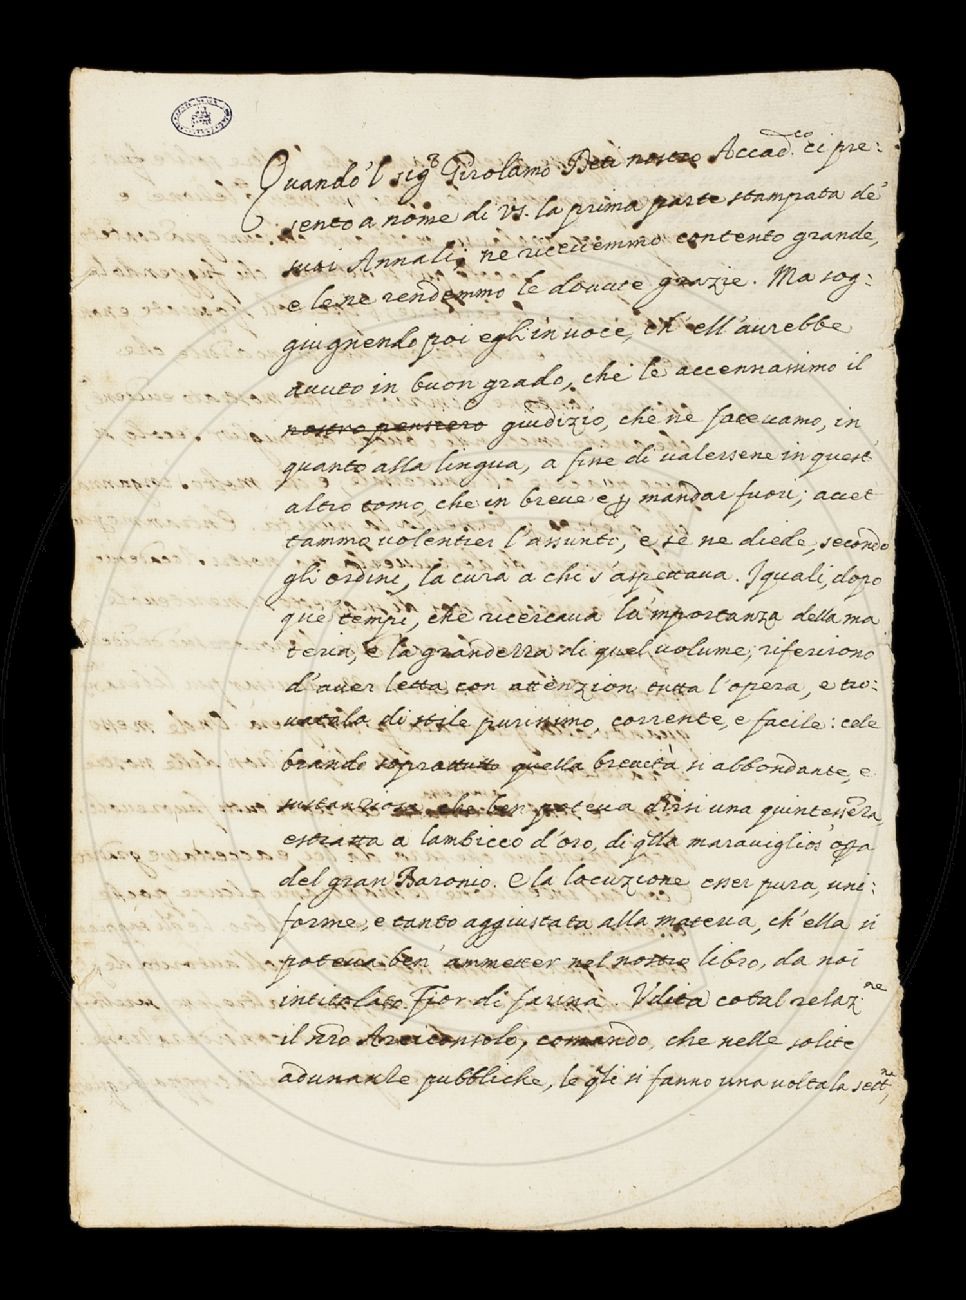 Quando 'l sig.r Girolamo Beti nostro Accad.co ci pre:
sentò a nome di Vs. la prima parte stampata de'
suoi Annali, ne riceuemmo contento grande,
e le ne rendemmo le douute grazie. Ma sog:
giugnendo poi egli in uoce, ch'ell'aurebbe
auuto in buon grado, che le accennassimo il
nostro pensiero giudizio, che ne faceuamo, in
quanto alla lingua, a fine di ualersene in quest'
altro tomo, che in breue è p mandar fuori; accet
tammo uolentier l'assunto, e se ne diede, secondo
gli ordini, la cura a chi s'aspettaua. I quali, dopo
que' tempi, che ricercaua la 'mportanza della ma
teria, e la grandezza di quel uolume, riferirono
d'auer letta con attenzion tutta l'opera, e tro:
uatala di stile purissimo, corrente, e facile: cele
brando soprattutto quella breuità sì abbondante, e
sustanziosa, che ben poteua dirsi una quintessenza,
estratta a lambicco d'oro, di qlla marauiglios' opa
del gran Baronio. E la locuzione esser pura, uni:
forme, e tanto aggiustata alla materia, ch'ella si
poteua ben' ammetter nel nostro libro, da noi
intitolato Fior di farina. Vdita cotal relaz.ne
il nro Arciconsolo, comandò, che nelle solite
adunanze pubbliche, le qli si fanno una uolta la sett.na,